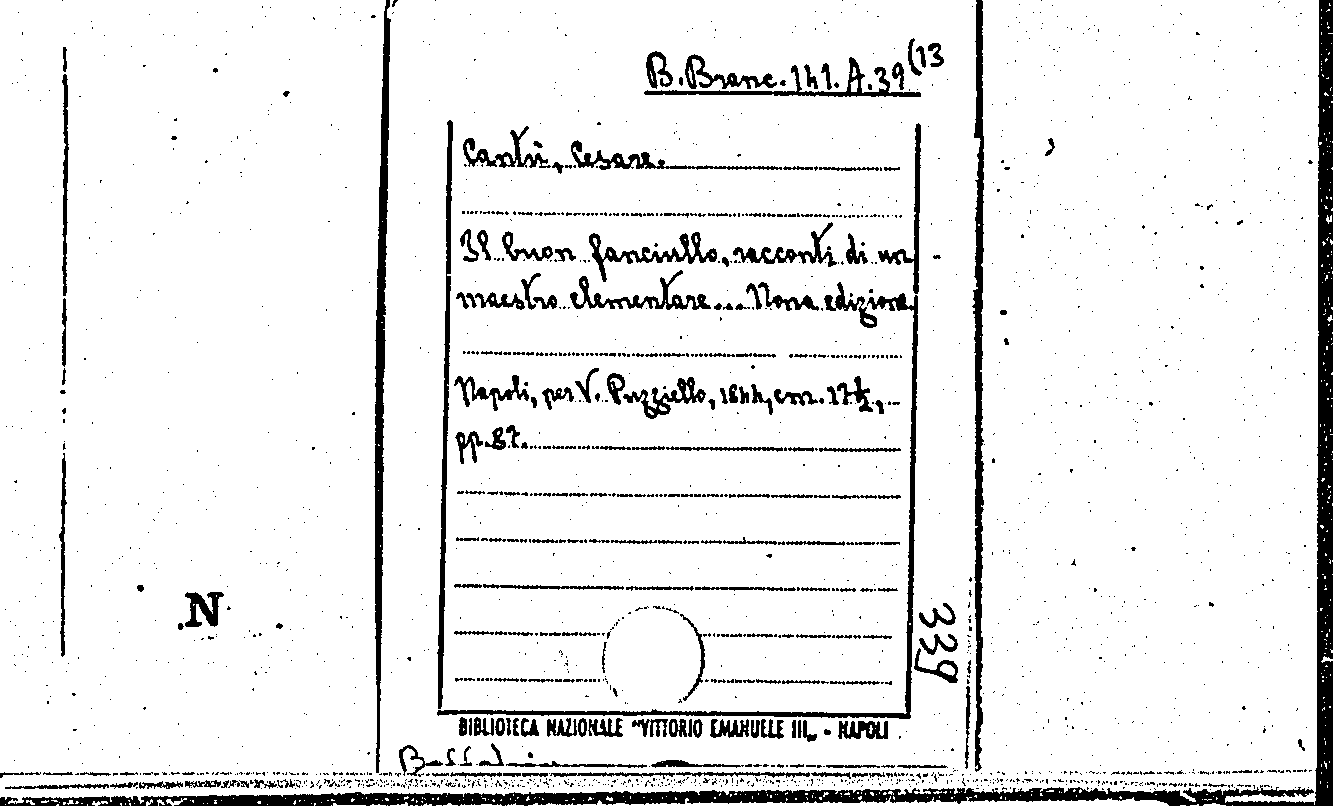 B. Branc. 141. A. 39 (13
Cantù, Cesare.
Il buon fanciullo, racconti di un
maestro elementare... Nona edizione.
Napoli, per V. Puzziello, 1844, cm. 17½,
pp. 87.
N
339
BIBLIOTECA NAZIONALE "VITTORIO EMANUELE III„ - NAPOLI